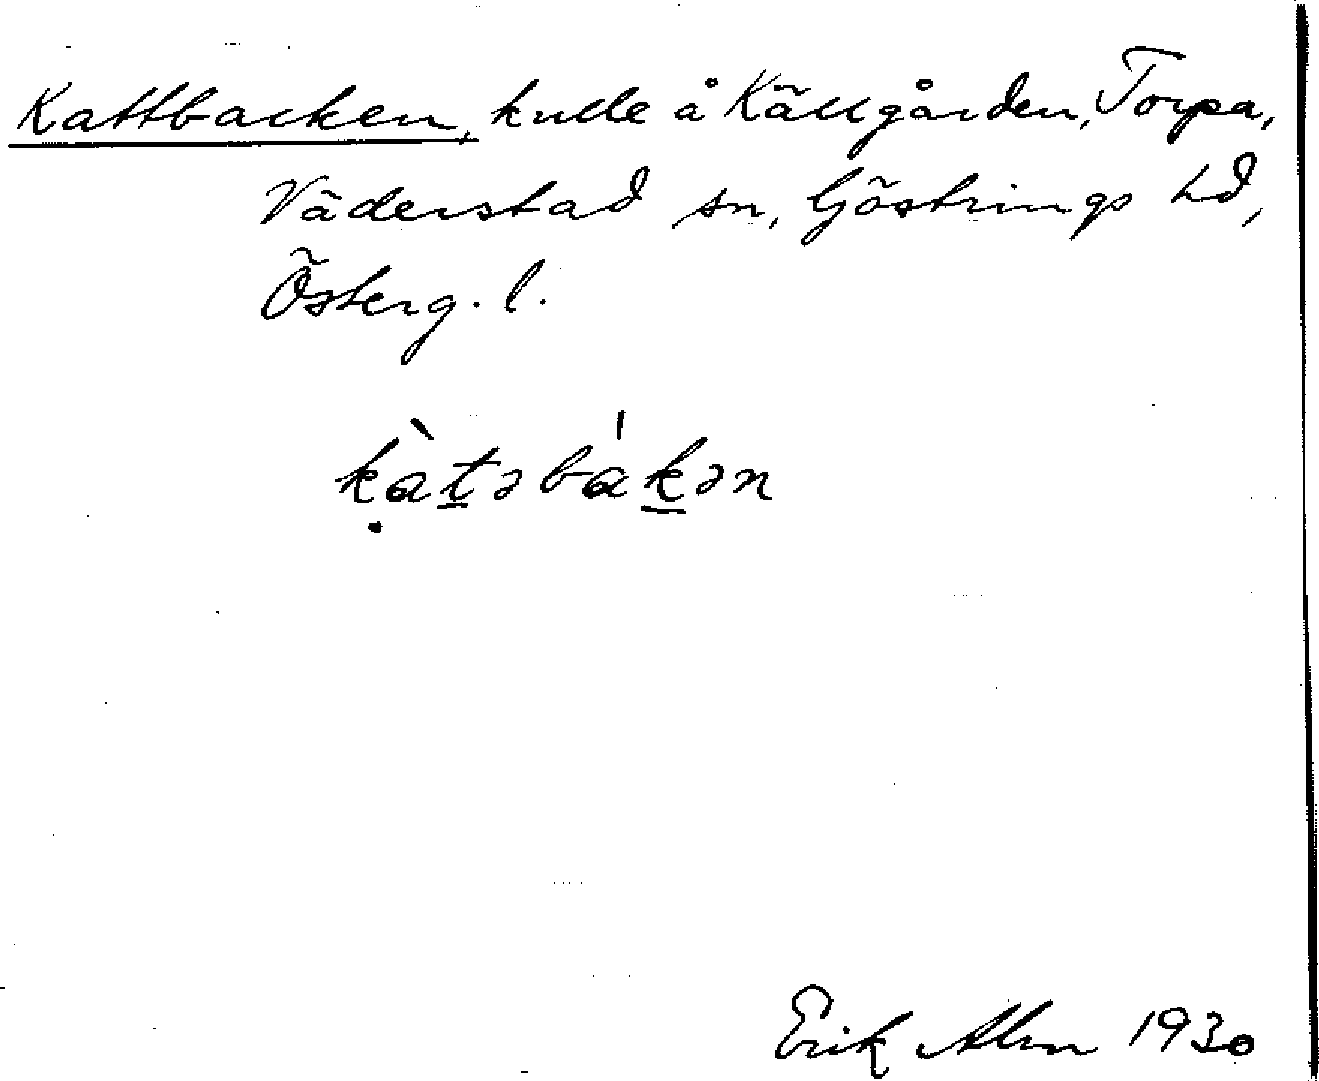 Kattbacken, kulle å Källgården, Torpa,
Väderstad sn, Göstrings hd,
Österg. l.
kàt̠əbák̠ən
Erik Alm 1930